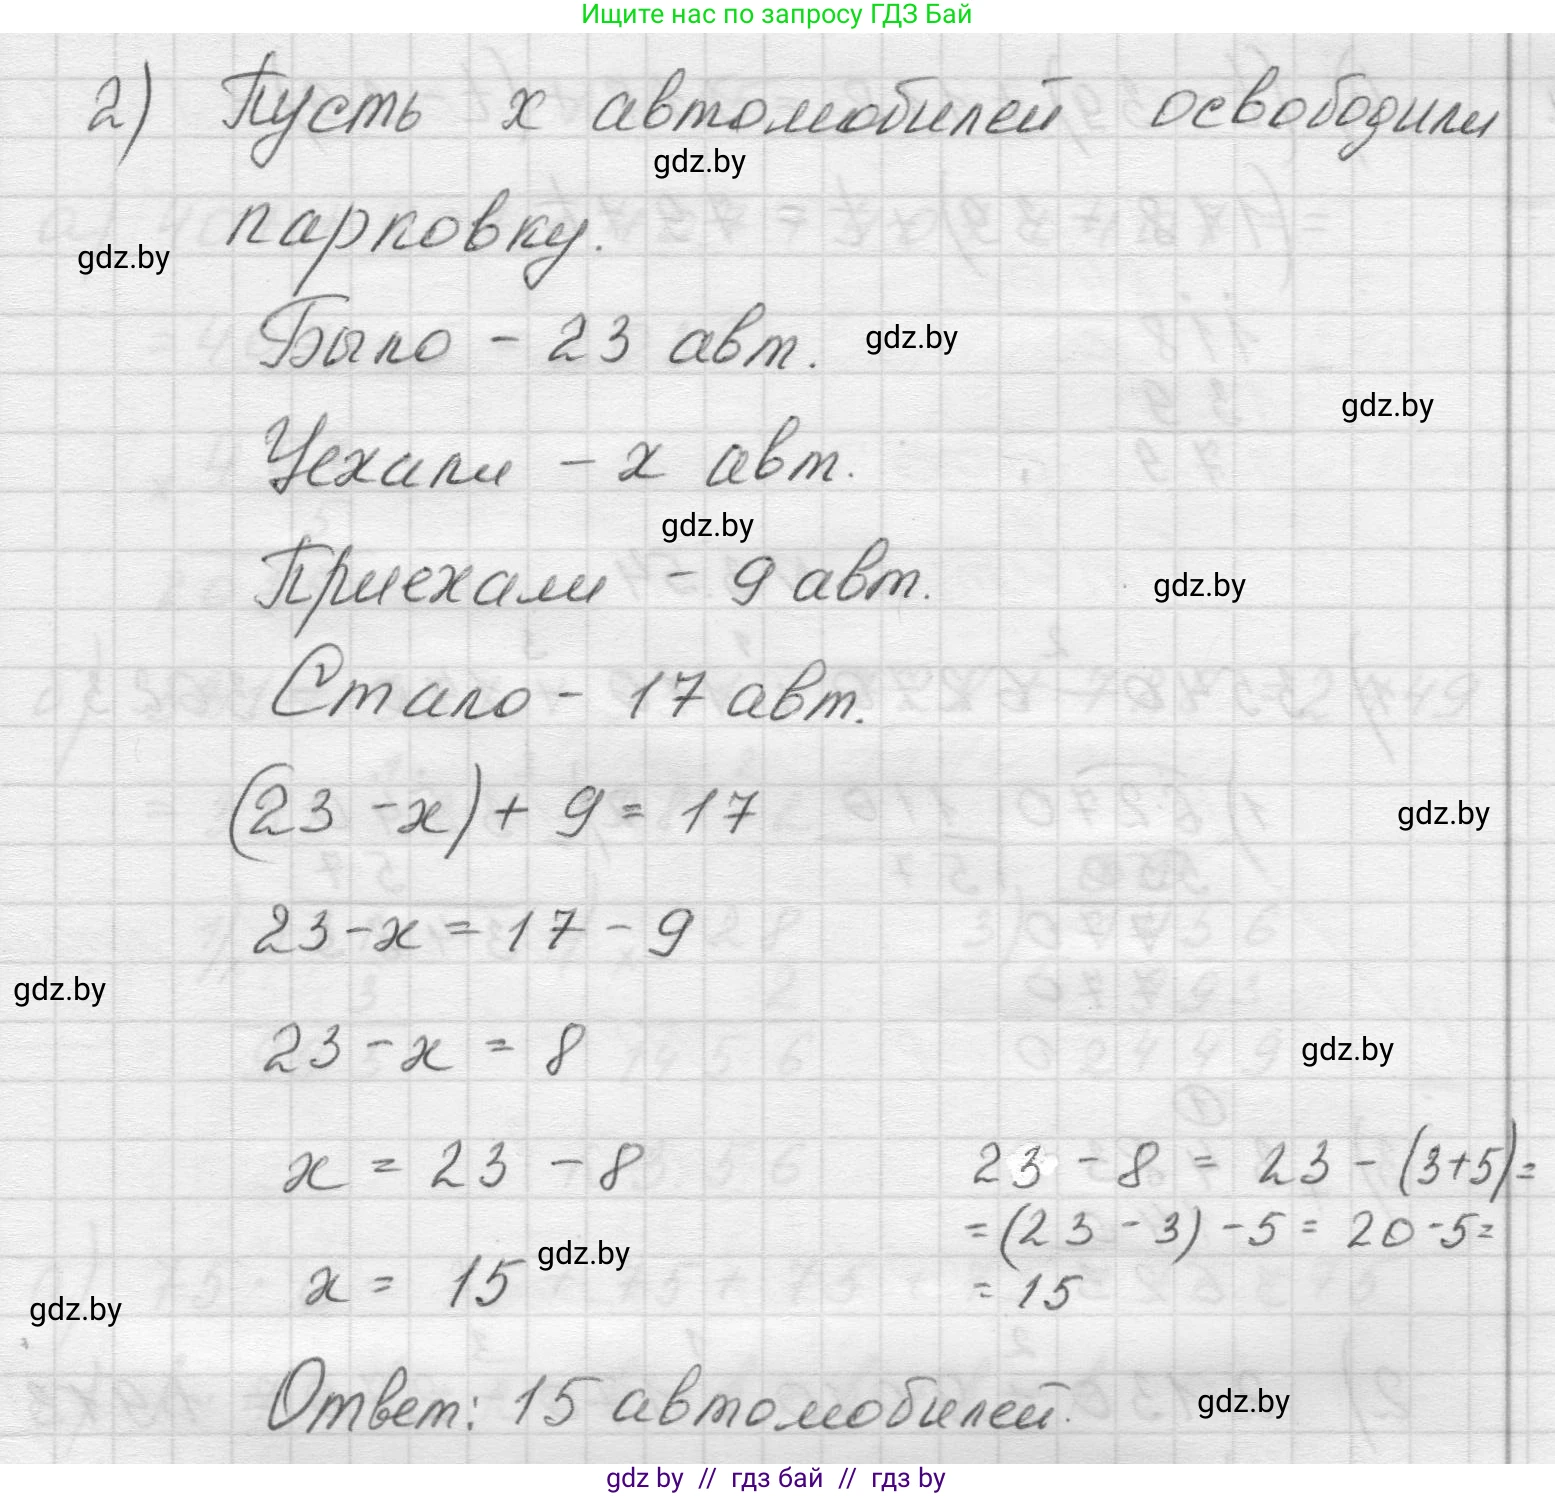 Ищите нас по запросу ГДЗ Бай
2) Пусть x автомобилей освободили
gdz.by
парковку.
gdz.by
Было - 23 авт.
gdz.by
gdz.by
Уехали - x авт.
gdz.by
Приехали - 9 авт.
gdz.by
Стало - 17 авт.
(23 - x) + 9 = 17
gdz.by
23 - x = 17 - 9
gdz.by
23 - x = 8
gdz.by
x = 23 - 8
23 - 8 = 23 - (3+5) =
= (23 - 3) - 5 = 20 - 5 =
gdz.by
x = 15
= 15
gdz.by
Ответ: 15 автомобилей.
gdz.by
gdz by // гдз бай // гдз by